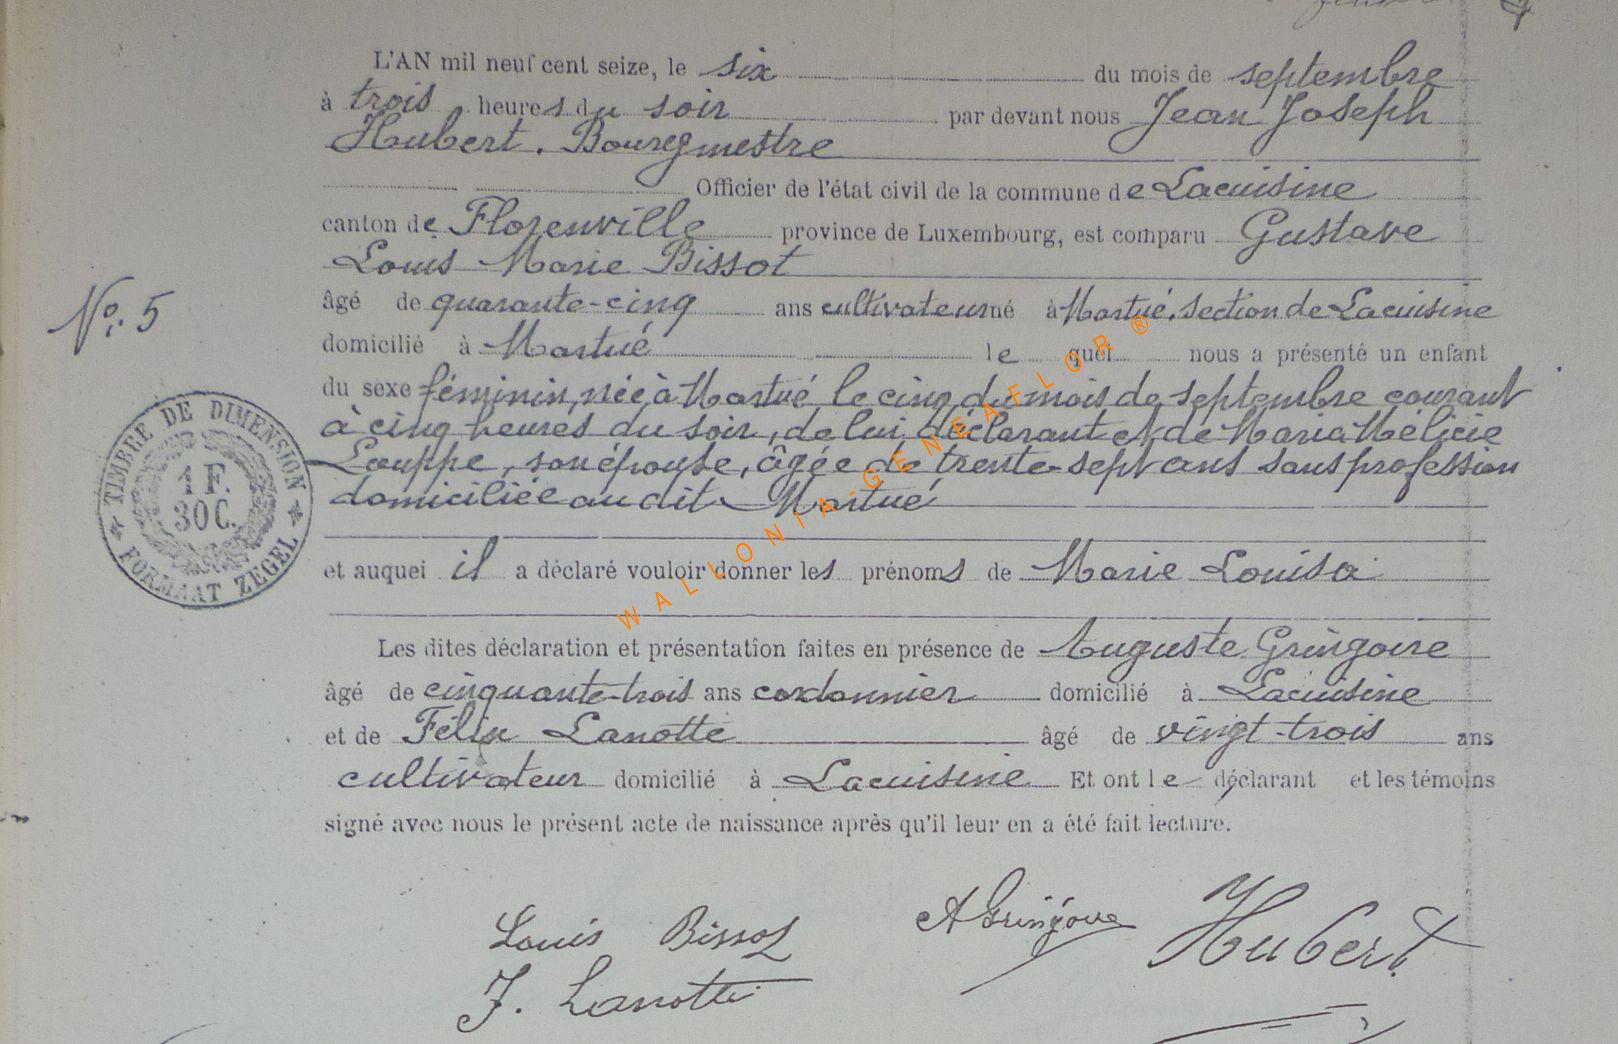 L'AN mil neuf cent seize, le six du mois de septembre
à trois heures du soir par devant nous Jean Joseph
Hubert. Bourgmestre
Officier de l'état civil de la commune de Lacuisine
canton de Florenville province de Luxembourg, est comparu Gustave
Louis Marie Bissot
No: 5
âgé de quarante-cinq ans cultivateur né à Martué, section de Lacuisine
domicilié à Martué lequel nous a présenté un enfant
du sexe féminin, née à Martué le cinq du mois de septembre courant
à cinq heures du soir, de lui déclarant et de Maria Mélicie
Louppe, son épouse, âgée de trente-sept ans sans profession
domiciliée au dit Martué
TIMBRE DE DIMENSION
1 F.
30 C.
FORMAAT ZEGEL
et auquel il a déclaré vouloir donner les prénoms de Marie Louisa
Les dites déclaration et présentation faites en présence de Auguste Gringoire
âgé de cinquante-trois ans cordonnier domicilié à Lacuisine
et de Félix Lanotte âgé de vingt-trois ans
cultivateur domicilié à Lacuisine Et ont le déclarant et les témoins
signé avec nous le présent acte de naissance après qu'il leur en a été fait lecture.
Louis Bissot A Gringoire Hubert
F. Lanotte
WALLONIA-GENEAFLOR ®